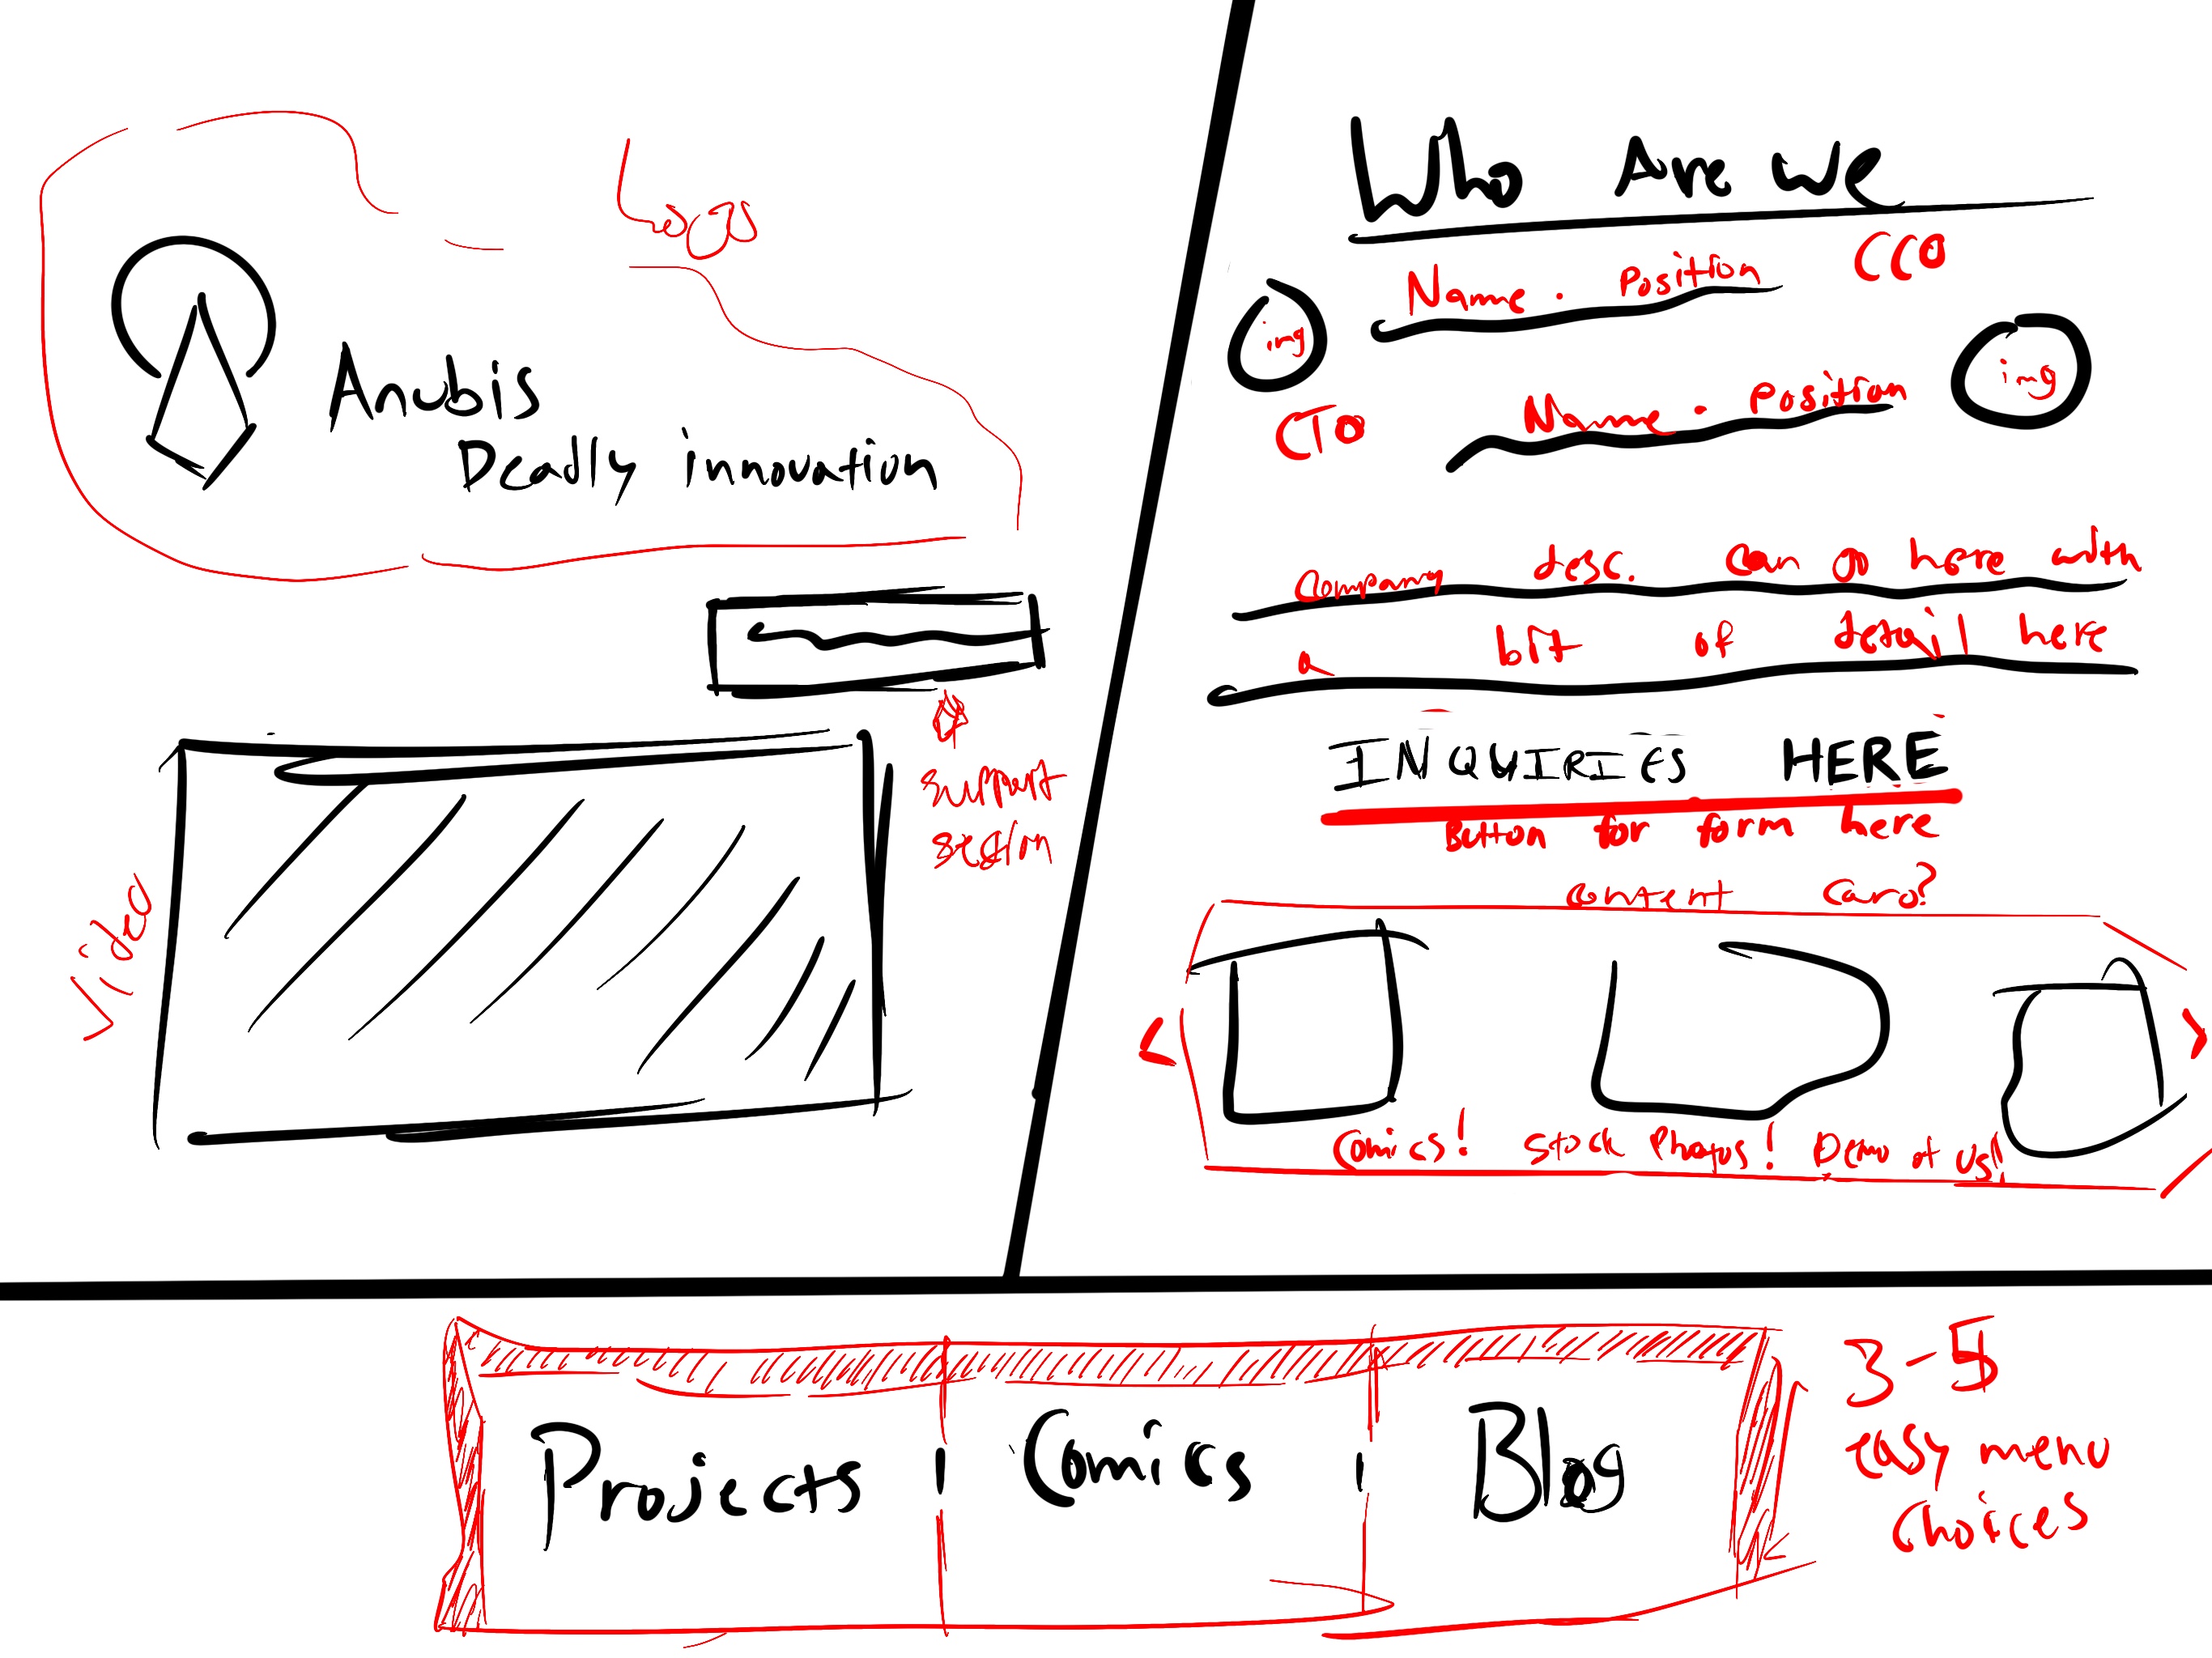 Logo
Anubis
Deadly innovation
support
section
Video
Who Are we
Name . Position CCO
img
img
CTO Name . Position
Company desc. can go here with
a bit of detail here
INQUIRIES HERE
Button for form here
content Caro?
Comics! Stock Photos! Demo of us!!
Projects | Comics | Blog
3-5
easy menu
choices